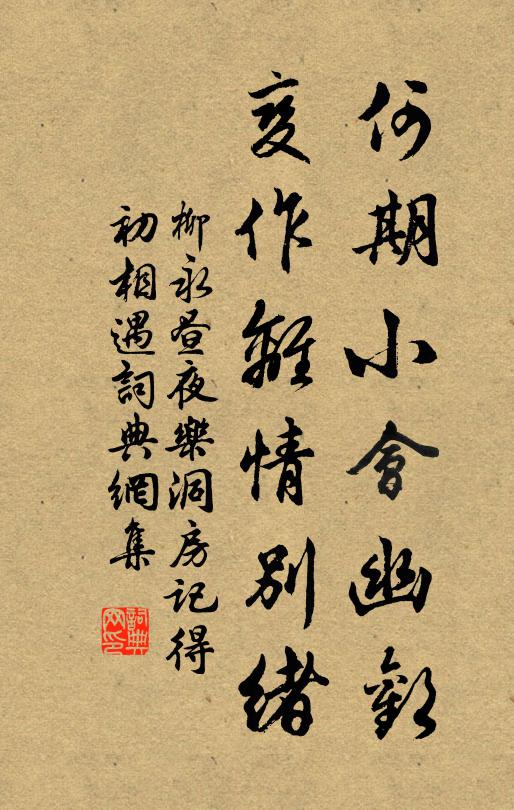 何期小會幽歡
变作離情別緒
柳永昼夜樂洞房记得
初相遇詞典網集
詞典网印